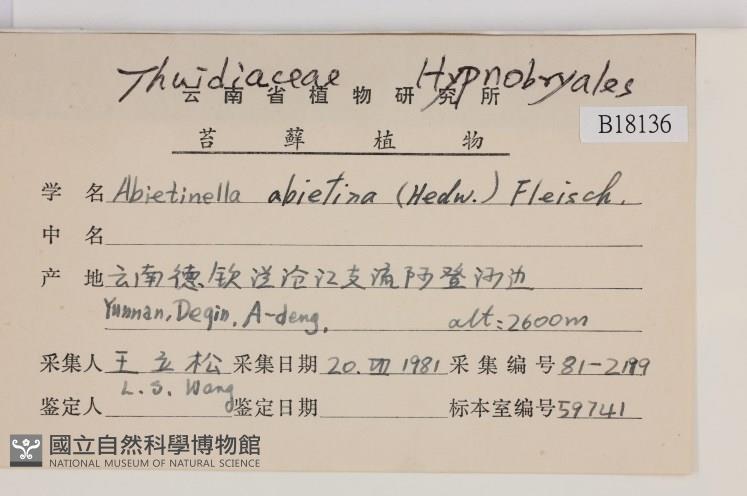 Thuidiaceae Hypnobryales
云南省植物研究所
B18136
苔藓植物
学名 Abietinella abietina (Hedw.) Fleisch.
中名
产地 云南德钦澜沧江支流阿登河边
Yunnan, Deqin, A-deng, alt: 2600m
采集人 王立松 采集日期 20. VII 1981 采集编号 81-2199
L. S. Wang
鉴定人 鉴定日期 标本室编号 59741
國立自然科學博物館
NATIONAL MUSEUM OF NATURAL SCIENCE